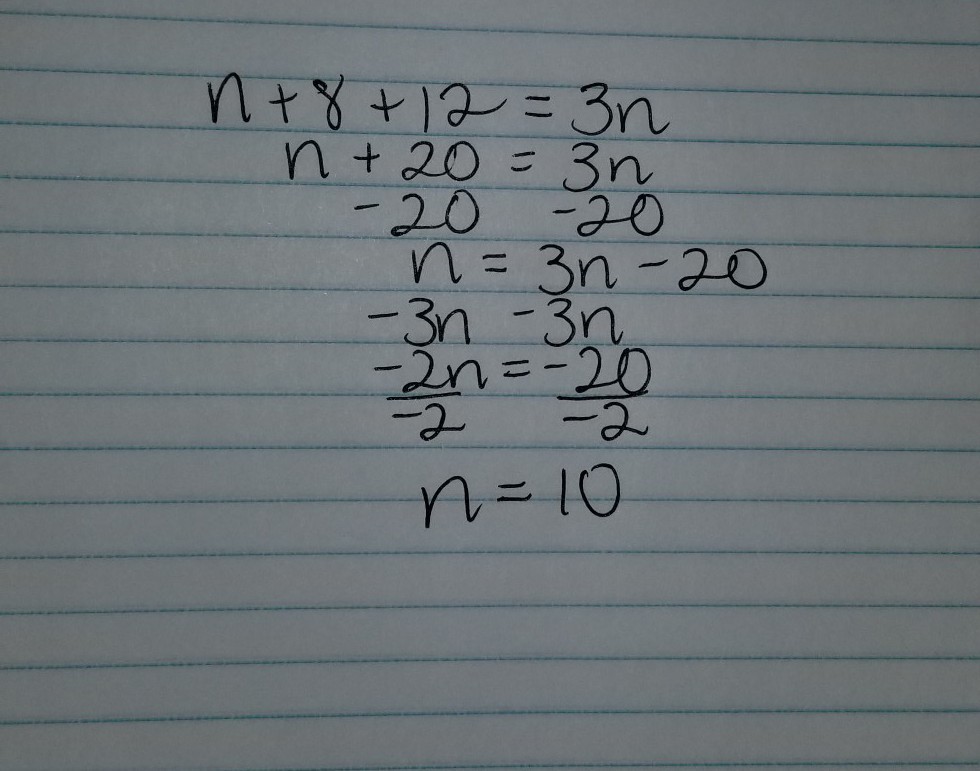 n + 8 + 12 = 3n
n + 20 = 3n
-20 -20
n = 3n - 20
-3n -3n
-2n = -20
-2 -2
n = 10